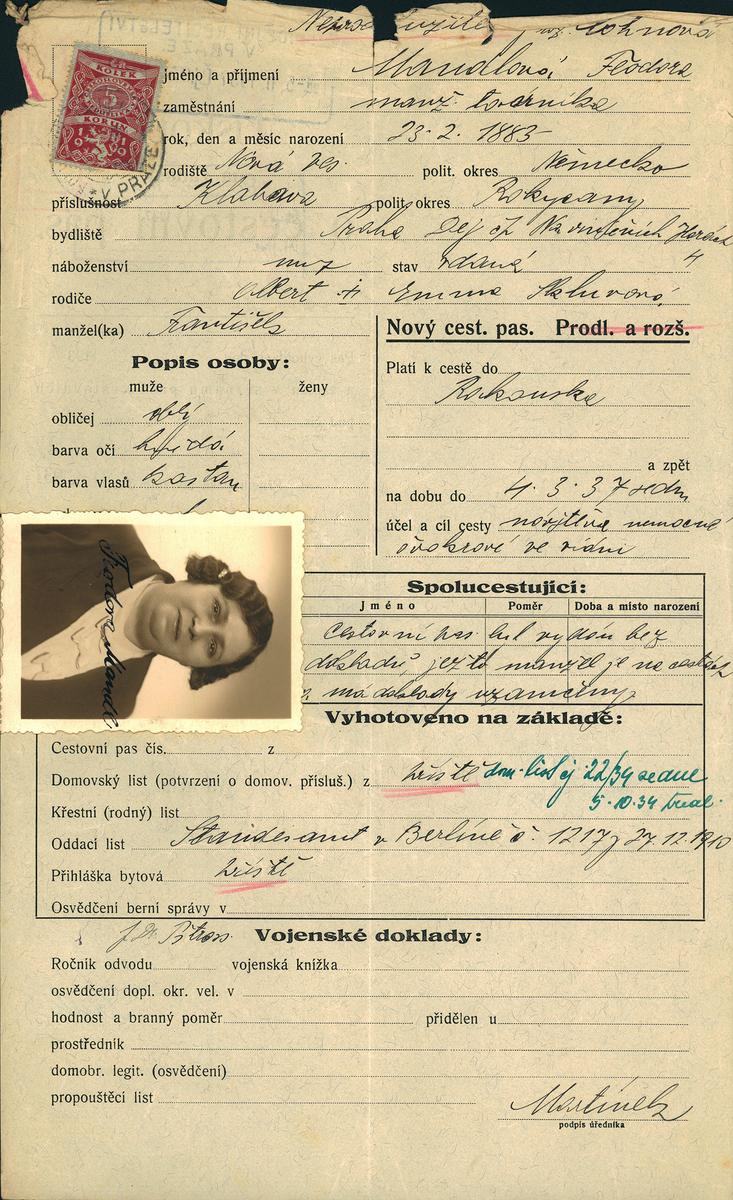 roz. Cohnová
jméno a přijmení Mandlová Feodora
zaměstnání manž. továrníka
rok, den a měsíc narození 23. 2. 1883
rodiště Nová Ves. polit. okres Německo
příslušnost Klabava polit. okres Rokycany
bydliště Praha Dej čp Na
náboženství stav vdaná 4
rodiče Albert Emma
manžel(ka) František
Nový cest. pas. Prodl. a rozš.
Platí k cestě do
Rakouska
a zpět
na dobu do 4. 3. 37
účel a cíl cesty návštěva nemocné
švakrové ve Vídni
Popis osoby:
muže ženy
obličej oblý
barva očí hnědá
barva vlasů kaštan
Feodora Mandl
KOLEK
5
KORUN
V PRAZE
Spolucestující:
Jméno Poměr Doba a místo narození
Cestovní pas byl vydán bez
dokladů, ježto manžel je na cestách
a má doklady uzamčeny
Vyhotoveno na základě:
Cestovní pas čís. z
Domovský list (potvrzení o domov. přísluš.) z zjiště dom. list čj 22/34
5. 10. 34
Křestní (rodný) list
Oddací list Standesamt v Berlíně č. 1217 z 27. 12. 1910
Přihláška bytová zjiště
Osvědčení berní správy v
Vojenské doklady:
Ročník odvodu vojenská knížka
osvědčení dopl. okr. vel. v
hodnost a branný poměr přidělen u
prostředník
domobr. legit. (osvědčení)
propouštěcí list
Martínek
podpis úředníka